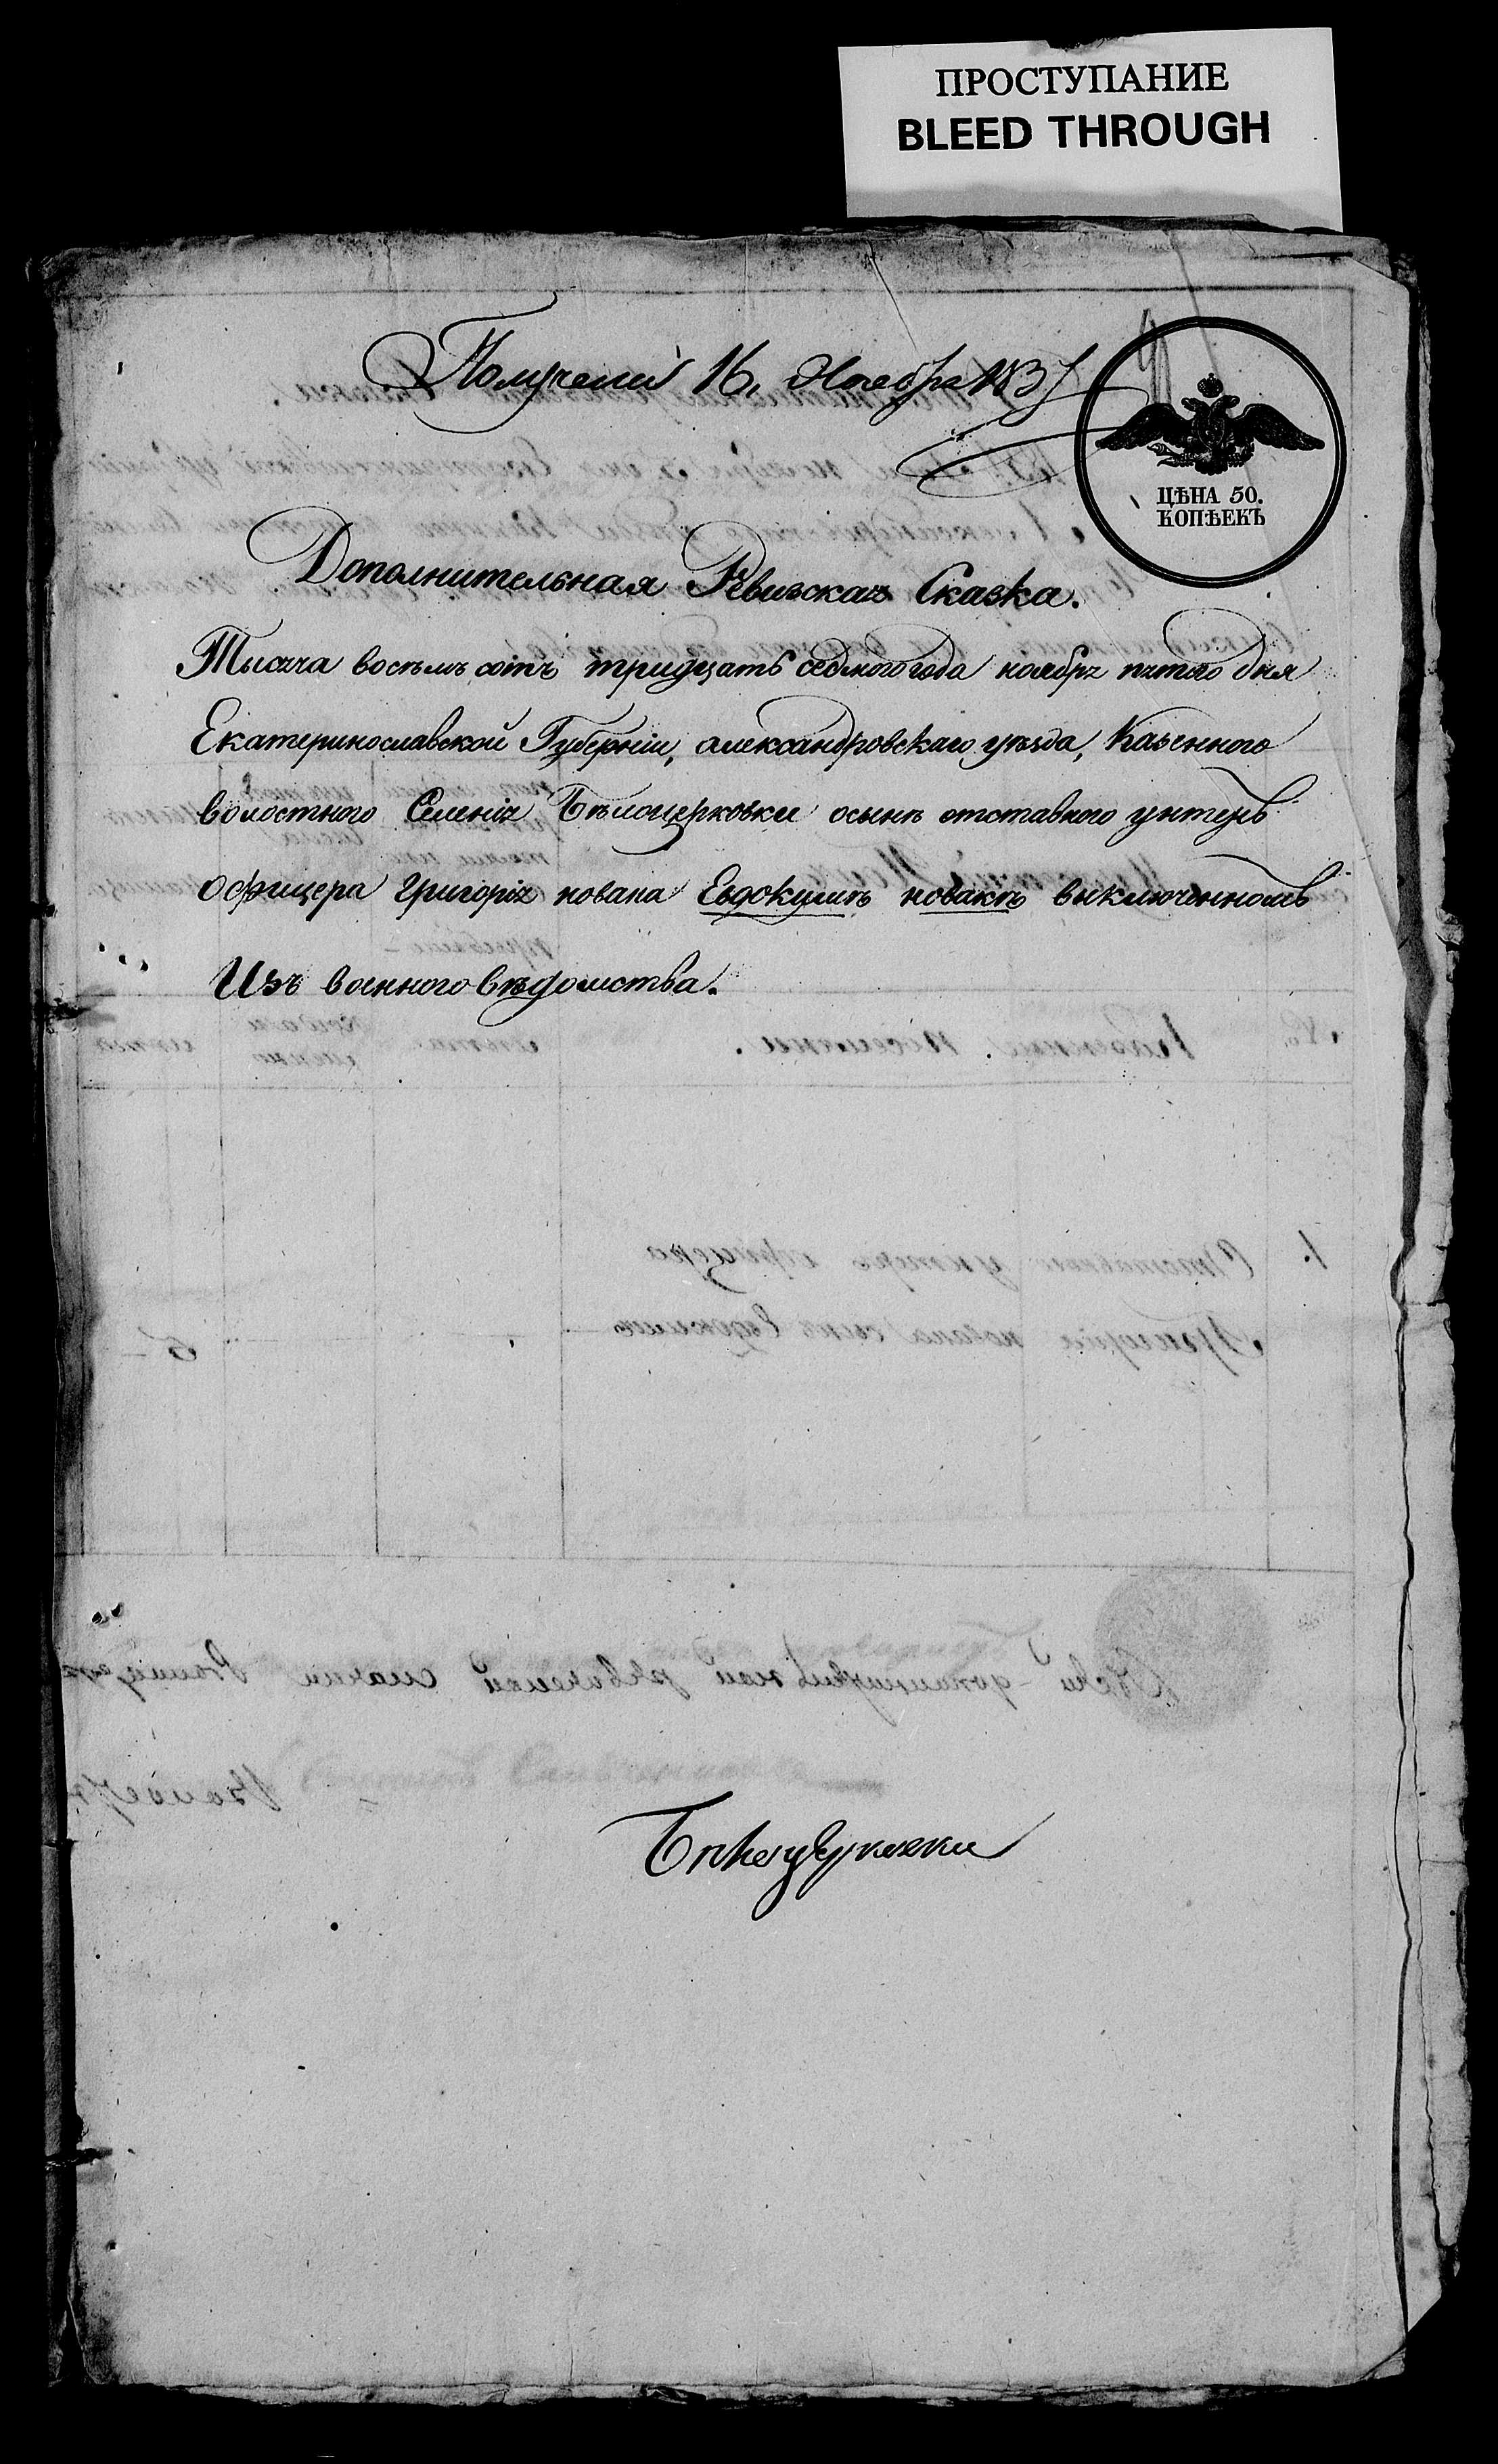 ПРОСТУПАНИЕ
BLEED THROUGH
Получена 16, Ноября 1837
ЦѢНА 50.
КОПѢЕКЪ
Дополнительная Ревизская Сказка.
Тысяча восемь сотъ тридцать седмого года ноября пятаго дня
Екатеринославской Губерніи, александровскаго уѣзда, Казенного
волостного Селенія Бѣлоцерковки осынѣ отставного унтеръ
офицера григорія новака Евдокимѣ новакѣ выключенномъ
Изъ военного вѣдомства.
Бѣлоцерковки